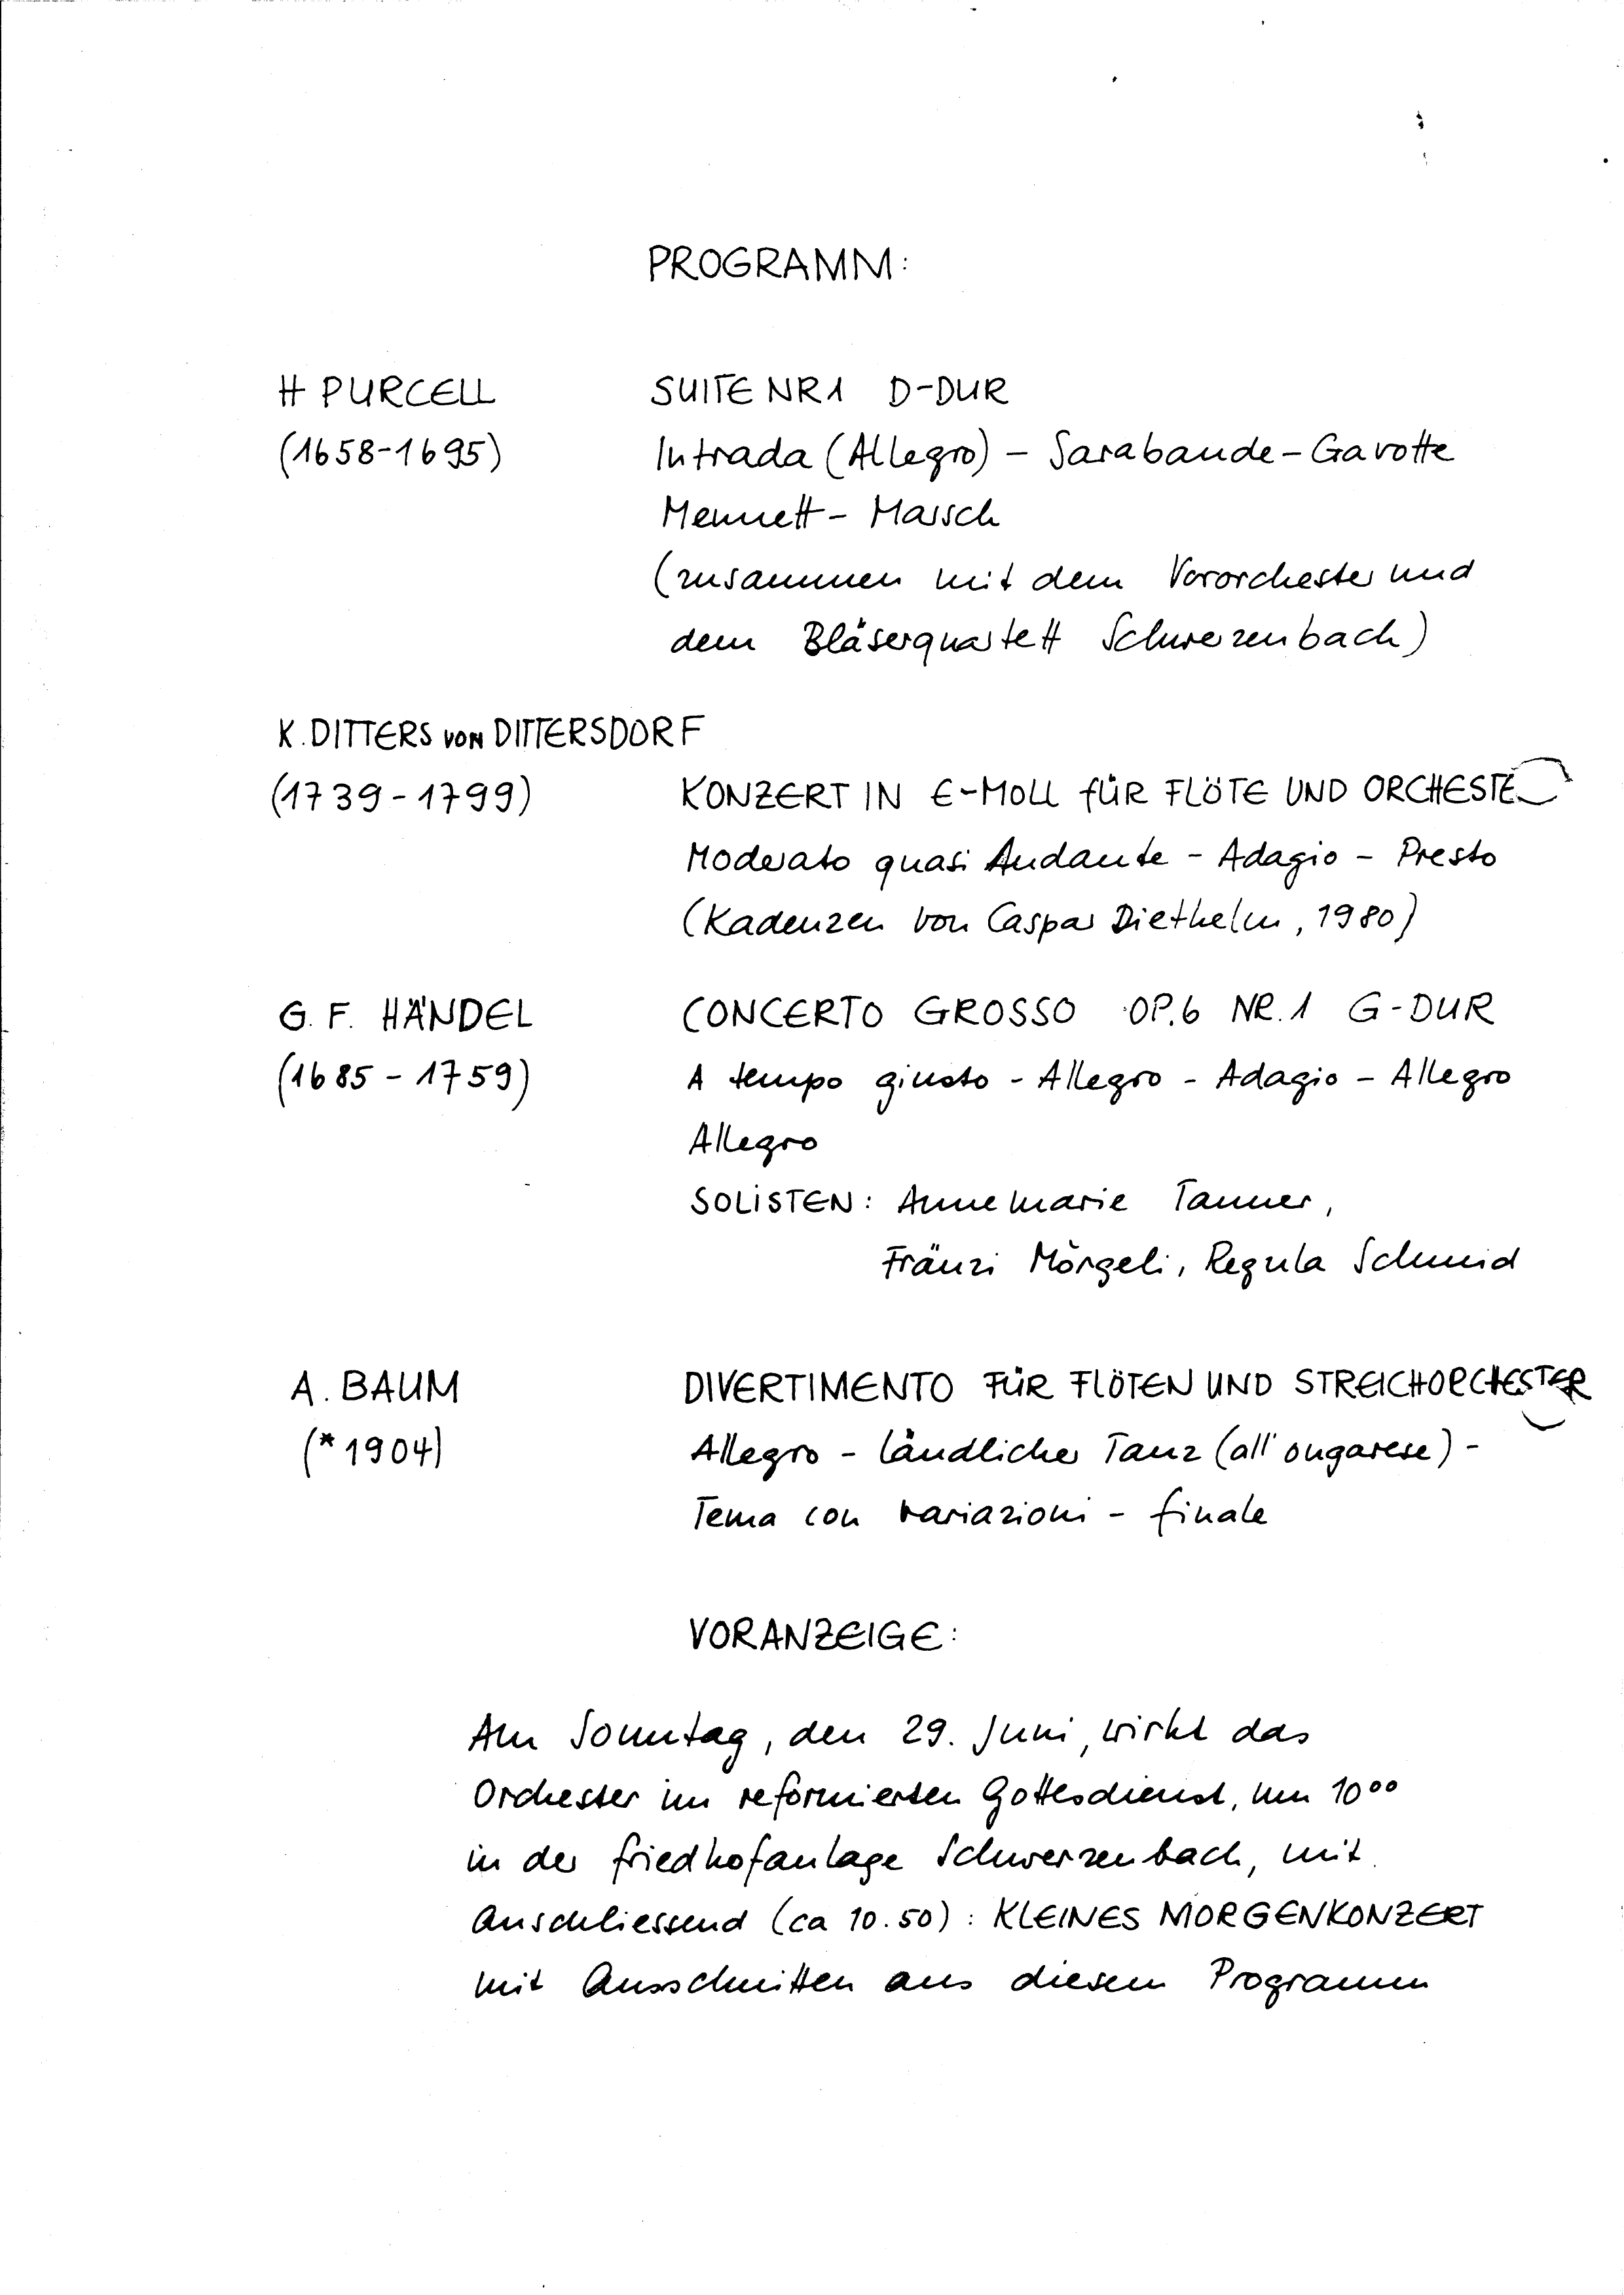 PROGRAMM:
H PURCELL SUITE NR1 D-DUR
(1658-1695) Intrada (Allegro) - Sarabande-Gavotte
Menuett - Marsch
(zusammen mit dem Vororchester und
dem Bläserquartett Schwerzenbach)
K. DITTERS von DITTERSDORF
(1739-1799) KONZERT IN E-MOLL FÜR FLÖTE UND ORCHESTE
Moderato quasi Andante - Adagio - Presto
(Kadenzen von Caspar Diethelm, 1980)
G. F. HÄNDEL CONCERTO GROSSO OP.6 NR.1 G-DUR
(1685 - 1759) A tempo giusto - Allegro - Adagio - Allegro
Allegro
SOLISTEN: Annemarie Tanner,
Fränzi Mörgeli, Regula Schmid
A. BAUM DIVERTIMENTO FÜR FLÖTEN UND STREICHORCHESTER
(* 1904) Allegro - ländlicher Tanz (all'ongarese) -
Tema con variazioni - finale
VORANZEIGE:
Am Sonntag, den 29. Juni, wirkt das
Orchester im reformierten Gottesdienst, um 10⁰⁰
in der Friedhofanlage Schwerzenbach, mit.
Anschliessend (ca 10.50): KLEINES MORGENKONZERT
mit Ausschnitten aus diesem Programm